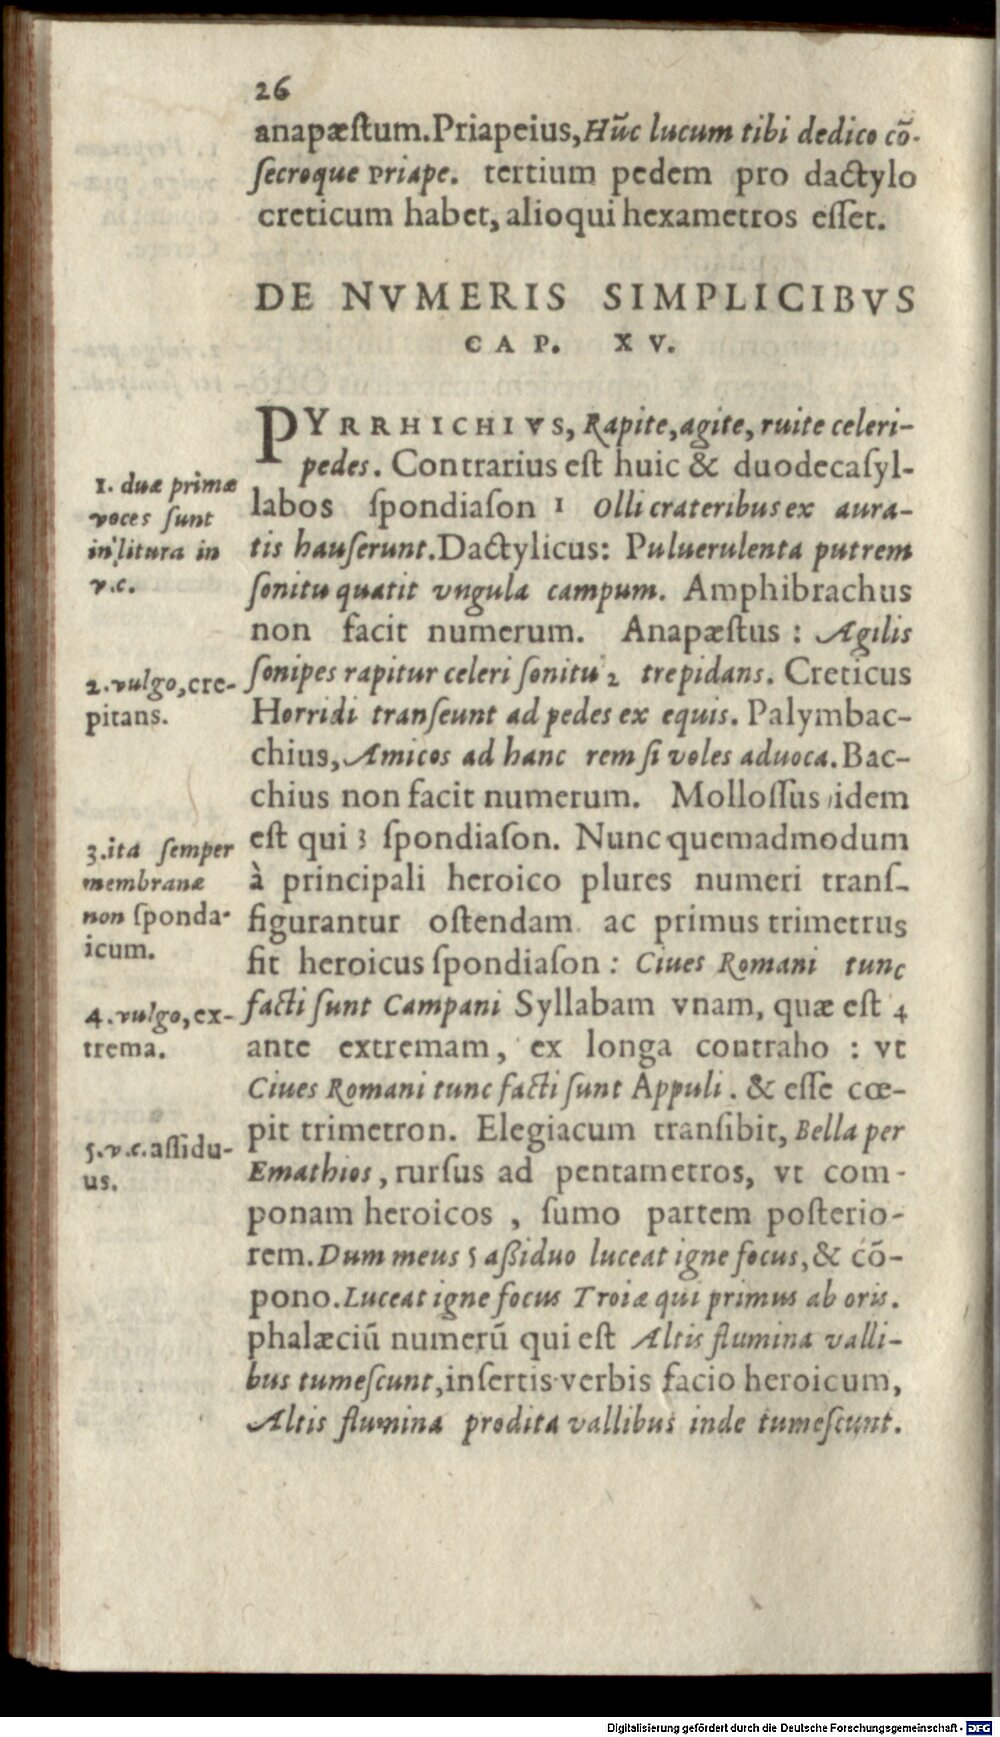 26
anapæſtum.Priapeius,Hūc lucum tibi dedico cō-
ſecroque Priape. tertium pedem pro dactylo
creticum habet, alioqui hexametros eſſet.
DE NVMERIS SIMPLICIBVS
CAP. XV.
PYRRHICHIVS, Rapite, agite, ruite celeri-
pedes. Contrarius eſt huic & duodecaſyl-
labos ſpondiaſon 1 Olli crateribus ex aura-
tis hauſerunt.Dactylicus: Puluerulenta putrem
ſonitu quatit vngula campum. Amphibrachus
non facit numerum. Anapæſtus : Agilis
ſonipes rapitur celeri ſonitu 2 trepidans. Creticus
Horridi tranſeunt ad pedes ex equis. Palymbac-
chius, Amicos ad hanc rem ſi voles aduoca. Bac-
chius non facit numerum. Moloſſus idem
eſt qui 3 ſpondiaſon. Nunc quemadmodum
à principali heroico plures numeri tranſ-
figurantur oſtendam ac primus trimetrus
fit heroicus ſpondiaſon : Ciues Romani tunc
facti ſunt Campani Syllabam vnam, quæ eſt 4
ante extremam, ex longa contraho : vt
Ciues Romani tunc facti ſunt Appuli. & eſſe cœ-
pit trimetron. Elegiacum tranſibit, Bella per
Emathios, rurſus ad pentametros, vt com-
ponam heroicos, ſumo partem poſterio-
rem.Dum meus 5 aßiduo luceat igne focus, & cō-
pono.Luceat igne focus Troiæ qui primus ab oris.
phalæciū numerū qui eſt Altis flumina valli-
bus tumeſcunt, inſertis verbis facio heroicum,
Altis flumina prodita vallibus inde tumeſcunt.
1. duæ primæ
voces ſunt
in litura in
v.c.
2. vulgo, cre-
pitans.
3. ita ſemper
membranæ
non ſponda-
icum.
4. vulgo, ex-
trema.
5. v.c. aſſidu-
us.
Digitalisierung gefördert durch die Deutsche Forschungsgemeinschaft - DFG